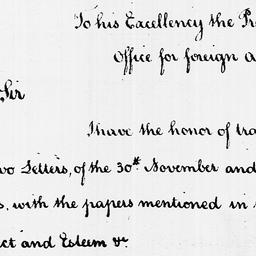 To his Excellency the Pr
Office for foreign a
Sir
I have the honor of tra
wo Letters, of the 30th November and
s. with the papers mentioned in
ct and Esteem &c